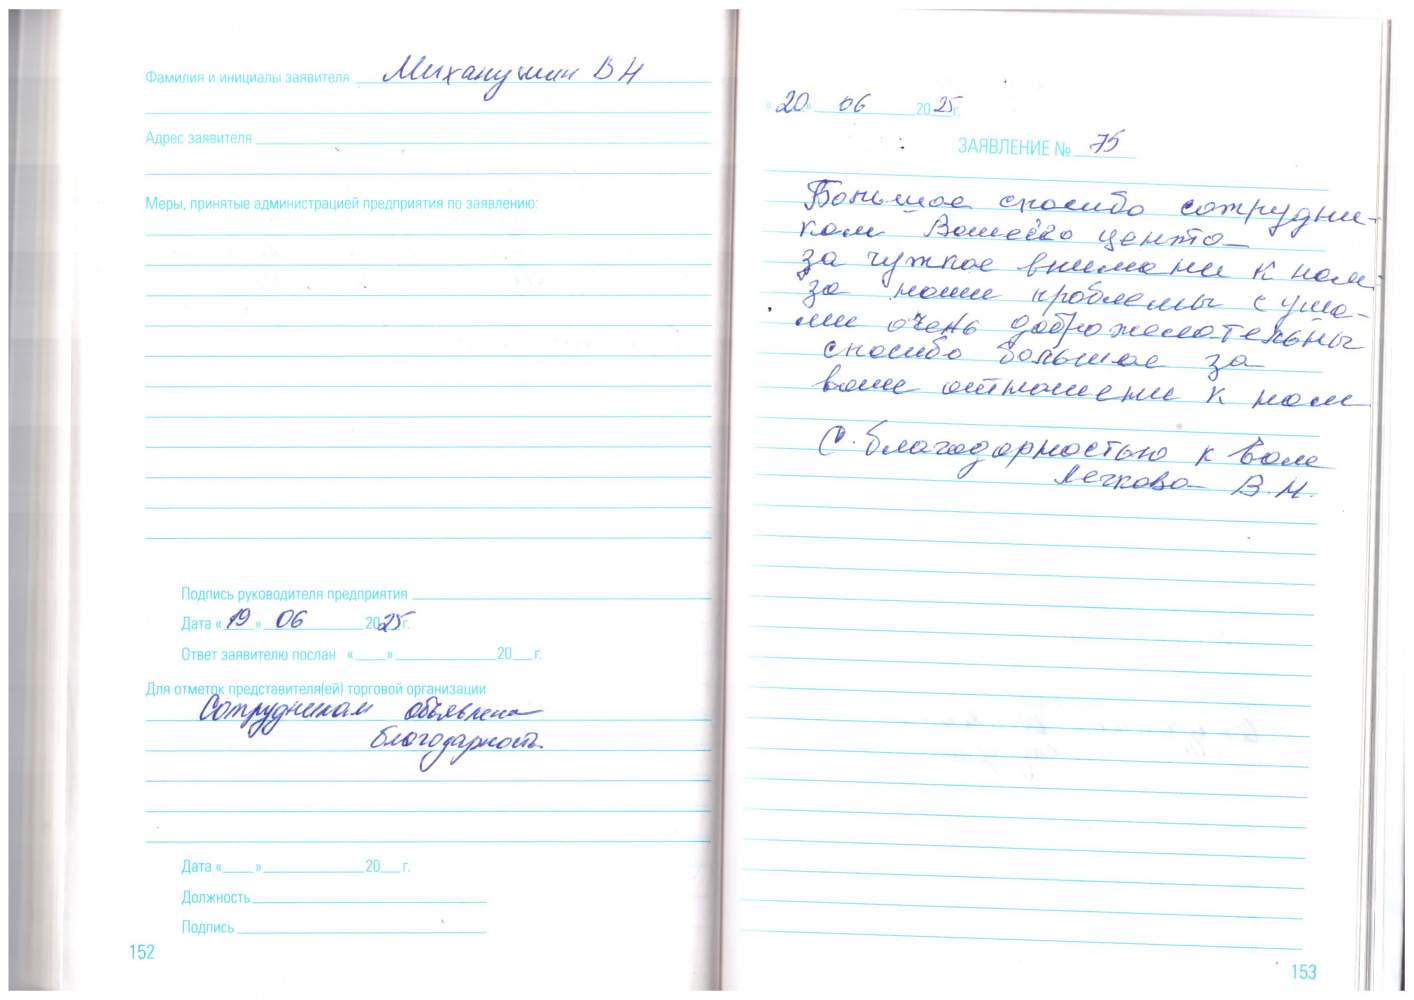 Фамилия и инициалы заявителя Миханушин В Н
Адрес заявителя
Меры, принятые администрацией предприятия по заявлению:
Подпись руководителя предприятия
Дата « 19 » 06 2025 г.
Ответ заявителю послан « » 20 г.
Для отметок представителя(ей) торговой организации
Сотрудникам объявлена
благодарность.
Дата « » 20 г.
Должность
Подпись
152
« 20 » 06 2025 г.
ЗАЯВЛЕНИЕ № 75
Большое спасибо сотрудни-
кам Вашего центра
за чуткое внимани к нам
за наши проблемы с уша-
ми очень доброжелательны
спасибо большое за
ваше отношени к нам
С. благодарностью к Вам
Лечкова В.Н.
153